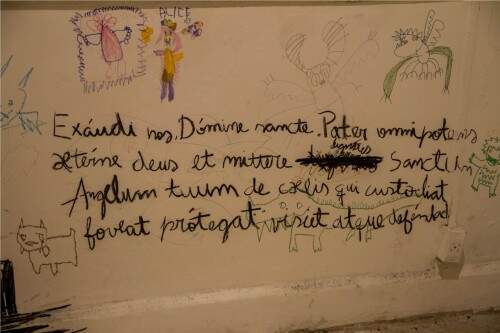 ALICE
Exáudi nos, Dómine sancte, Pater omnipotens
ætérne deus et míttere Sanctum
Angelum tuum de cælis qui custodiat
foveat prótegat visit atque deféndat